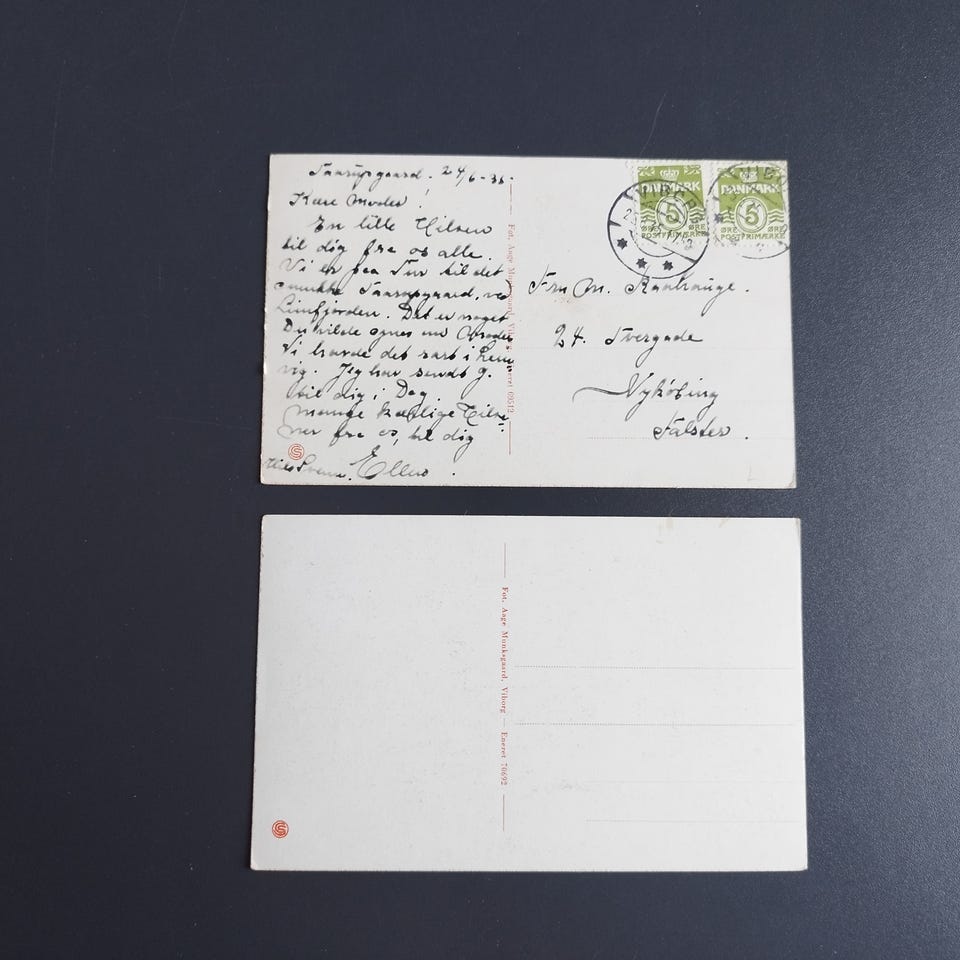 Taarupgaard. 24/6-35.
Kære Moder!
En lille Hilsen
til dig fra os alle.
Vi er paa Tur til det
smukke Taarupgaard, ve
Limfjorden. Det er noget
Du vilde synes om Moder
Vi havde det rart i Lem
vig. Jeg har sendt g.
til dig i Dag.
Mange kærlige Hilse
ner fra os, til dig
Ellen.
Fot. Aage Munksgaard, Viborg Eneret 69512
DANMARK
5
ØRE ØRE
POSTFRIMÆRKE
DANMARK
5
ØRE ØRE
POSTFRIMÆRKE
VIBORG
Fru M.
24. Tvergade
Nykøbing
Falster.
Fot. Aage Munksgaard, Viborg — Eneret 70692